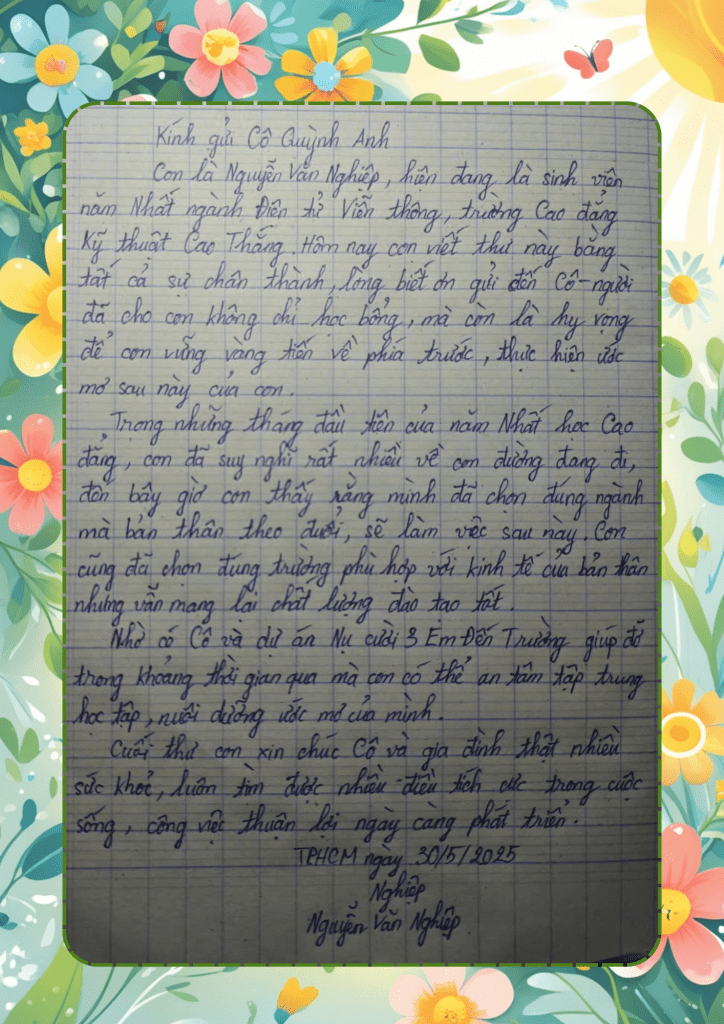 Kính gửi Cô Quỳnh Anh
Con là Nguyễn Văn Nghiệp, hiện đang là sinh viên
năm Nhất ngành Điện tử Viễn thông, trường Cao đẳng
Kỹ thuật Cao Thắng. Hôm nay con viết thư này bằng
tất cả sự chân thành, lòng biết ơn gửi đến Cô - người
đã cho con không chỉ học bổng, mà còn là hy vọng
để con vững vàng tiến về phía trước, thực hiện ước
mơ sau này của con.
Trong những tháng đầu tiên của năm Nhất học Cao
đẳng, con đã suy nghĩ rất nhiều về con đường đang đi,
đến bây giờ con thấy rằng mình đã chọn đúng ngành
mà bản thân theo đuổi, sẽ làm việc sau này. Con
cũng đã chọn đúng trường phù hợp với kinh tế của bản thân
nhưng vẫn mang lại chất lượng đào tạo tốt.
Nhờ có Cô và dự án Nụ cười 3 Em Đến Trường giúp đỡ
trong khoảng thời gian qua mà con có thể an tâm tập trung
học tập, nuôi dưỡng ước mơ của mình.
Cuối thư con xin chúc Cô và gia đình thật nhiều
sức khoẻ, luôn tìm được nhiều điều tích cực trong cuộc
sống, công việc thuận lợi ngày càng phát triển.
TPHCM ngày 30/5/2025
Nghiệp
Nguyễn Văn Nghiệp